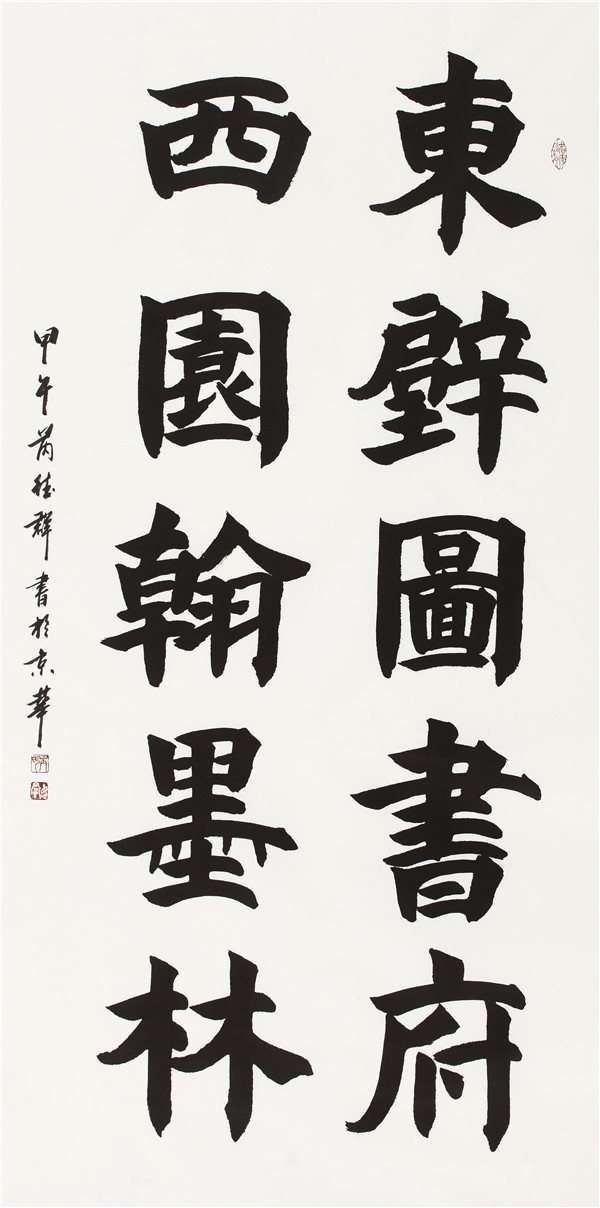 東壁圖書府
西園翰墨林
甲午芮德群書於京華